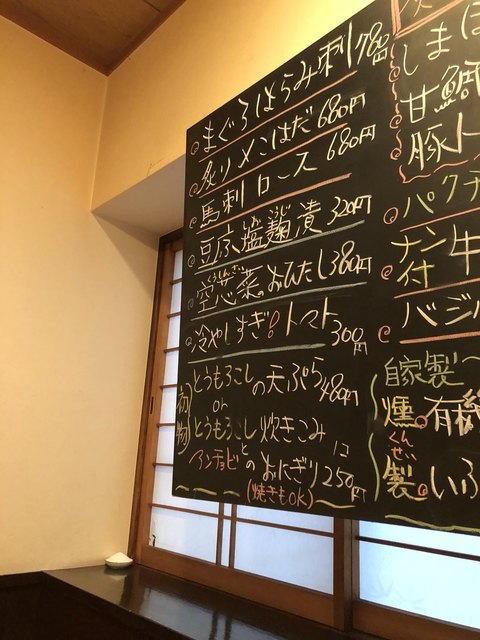 まぐろはらみ刺 780
炙り〆こはだ 680円
馬刺 ロース 680円
豆腐の塩麹漬 320円
しお こうじ
空芯菜のおひたし 380円
くうしんさい
冷やしすぎ!トマト 300円
初物
とうもろこしの天ぷら 480円
or
とうもろこし炊きこみ
アンチョビとのおにぎり 1コ 250円
(焼きもOK)
しまほ
甘鯛
豚ト
パクチ
ナン付 牛
バジル
自家製
燻製
くんせい
有機
いぶ